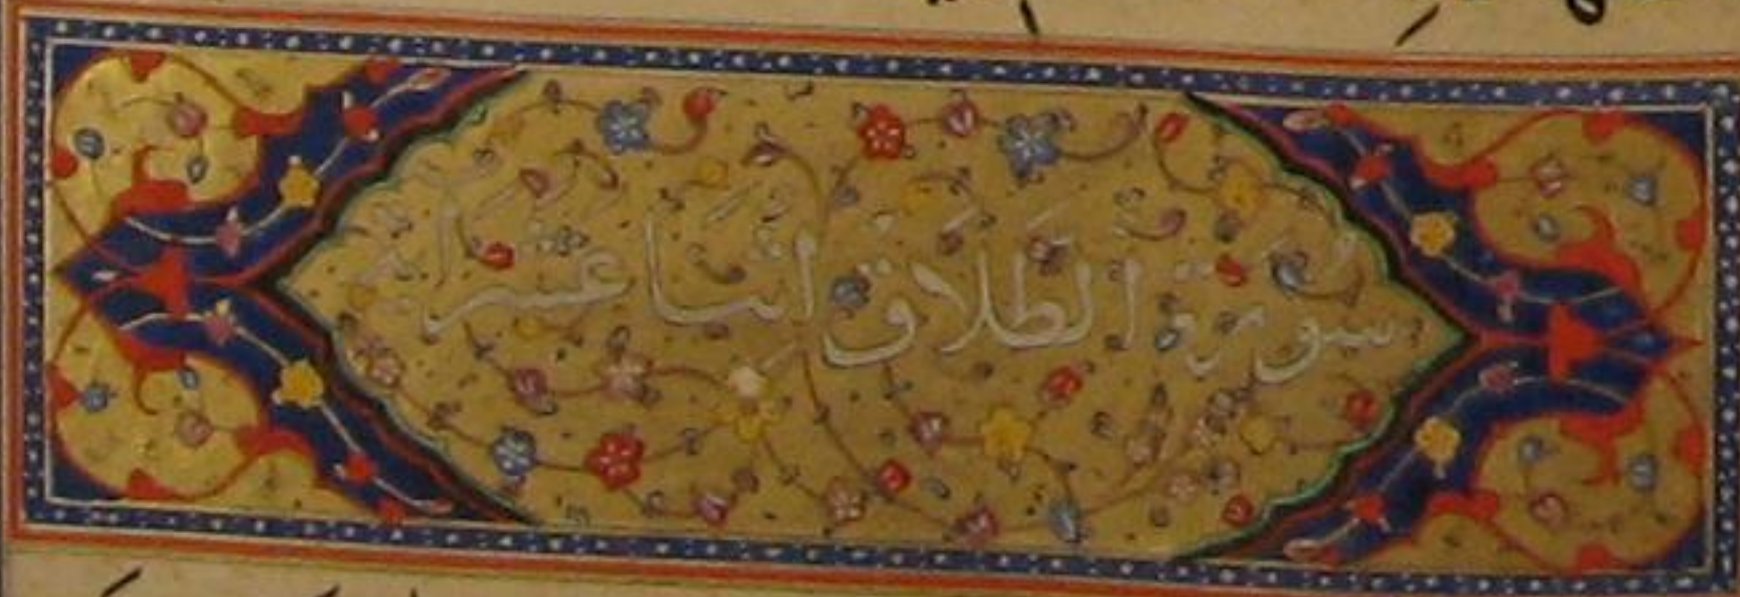 سورة الطلاق اثنا عشر اية